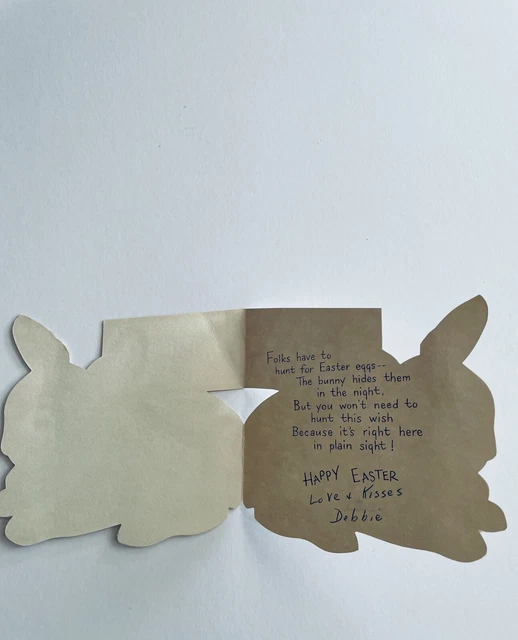 Folks have to
hunt for Easter eggs--
The bunny hides them
in the night,
But you won't need to
hunt this wish
Because it's right here
in plain sight!
HAPPY EASTER
Love & Kisses
Debbie